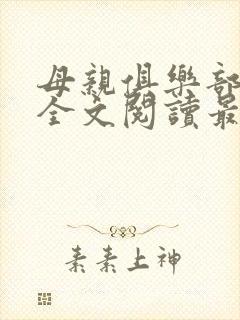 母親俱樂部
全文閱讀最
素素上神